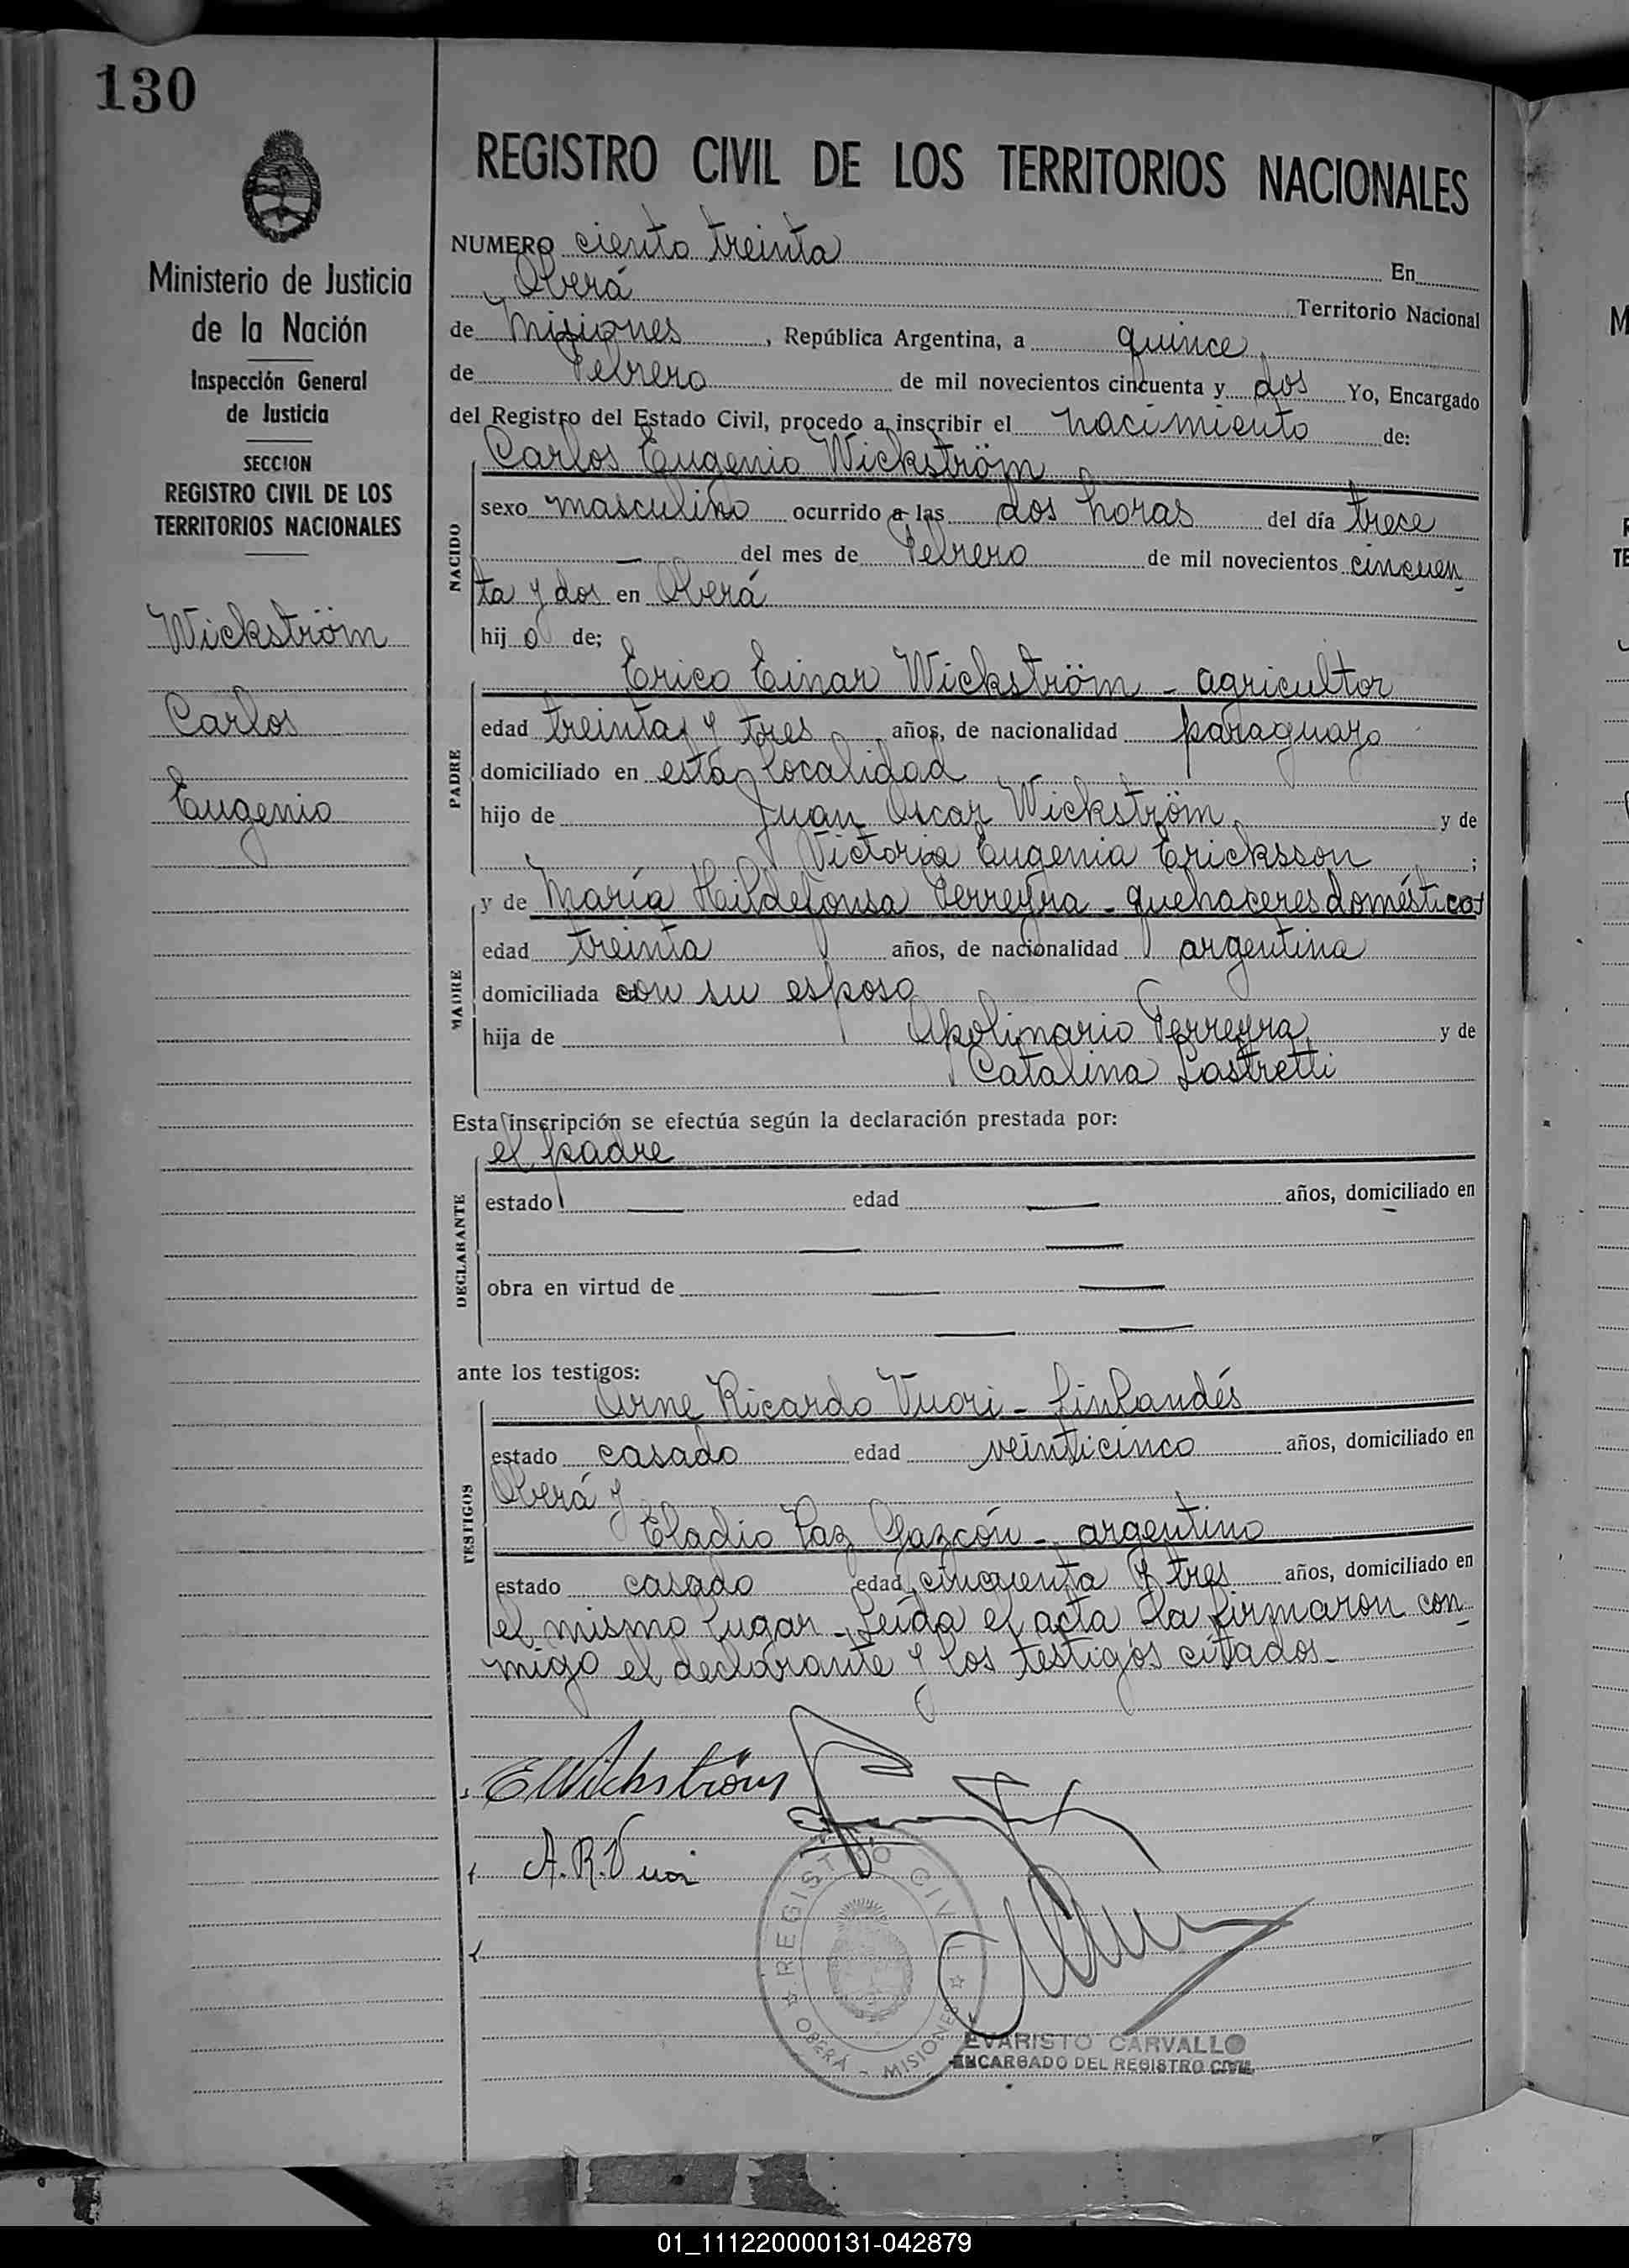 130
Ministerio de Justicia
de la Nación
Inspección General
de Justicia
SECCION
REGISTRO CIVIL DE LOS
TERRITORIOS NACIONALES
Wickström
Carlos
Eugenio
REGISTRO CIVIL DE LOS TERRITORIOS NACIONALES
NUMERO ciento treinta En
Oberá Territorio Nacional
de Misiones, República Argentina, a quince
de Febrero de mil novecientos cincuenta y dos Yo, Encargado
del Registro del Estado Civil, procedo a inscribir el nacimiento de:
Carlos Eugenio Wickström
NACIDO
sexo masculino ocurrido a las dos horas del día trece
— del mes de Febrero de mil novecientos cincuen
ta y dos en Oberá
hij o de;
Erico Einar Wickström - agricultor
PADRE
edad treinta y tres años, de nacionalidad paraguayo
domiciliado en esta localidad
hijo de Juan Oscar Wickström y de
Victoria Eugenia Ericksson ;
y de María Hildefonsa Ferreyra - quehaceres domésticos
MADRE
edad treinta años, de nacionalidad argentina
domiciliada con su esposo
hija de Apolinario Ferreyra y de
Catalina Lastretti
Esta inscripción se efectúa según la declaración prestada por:
el padre
DECLARANTE
estado — edad — años, domiciliado en
— —
obra en virtud de — —
— —
ante los testigos:
Arne Ricardo Vuori - finlandés
TESTIGOS
estado casado edad veinticinco años, domiciliado en
Oberá y
Eladio Paz Gazcón - argentino
estado casado edad cincuenta y tres años, domiciliado en
el mismo lugar - Leída el acta la firmaron con
migo el declarante y los testigos citados -
EWickström
A. R. Vuori
REGISTRO CIVIL
OBERÁ - MISIONES
EVARISTO CARVALLO
ENCARGADO DEL REGISTRO CIVIL
01_111220000131-042879